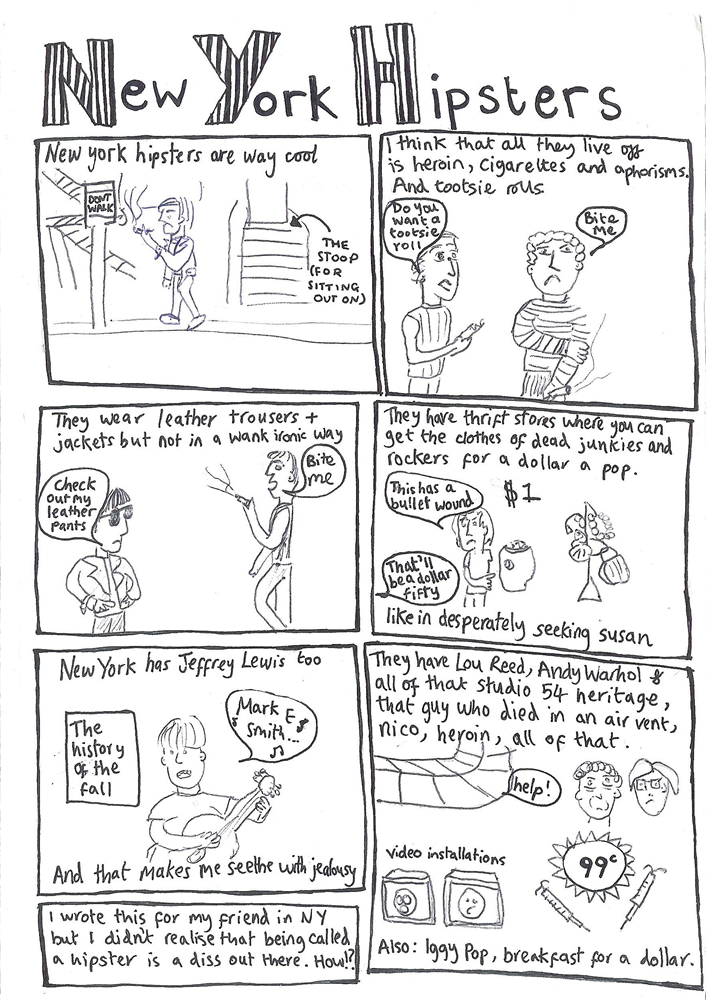 New York Hipsters
New york hipsters are way cool
DONT
WALK
THE
STOOP
(FOR
SITTING
OUT ON)
I think that all they live off
is heroin, cigarettes and aphorisms.
And tootsie rolls
Do you
want a
tootsie
roll
Bite
me
They wear leather trousers +
jackets but not in a wank ironic way
Check
out my
leather
pants
Bite
me
They have thrift stores where you can
get the clothes of dead junkies and
rockers for a dollar a pop.
This has a
bullet wound
$1
That'll
be a dollar
fifty
like in desperately seeking susan
New York has Jeffrey Lewis too
The
history
of the
fall
Mark E
Smith...
And that makes me seethe with jealousy
They have Lou Reed, Andy Warhol &
all of that studio 54 heritage,
that guy who died in an air vent,
nico, heroin, all of that.
help!
video installations
99c
Also: Iggy Pop, breakfast for a dollar.
I wrote this for my friend in NY
but I didn't realise that being called
a hipster is a diss out there. How!?